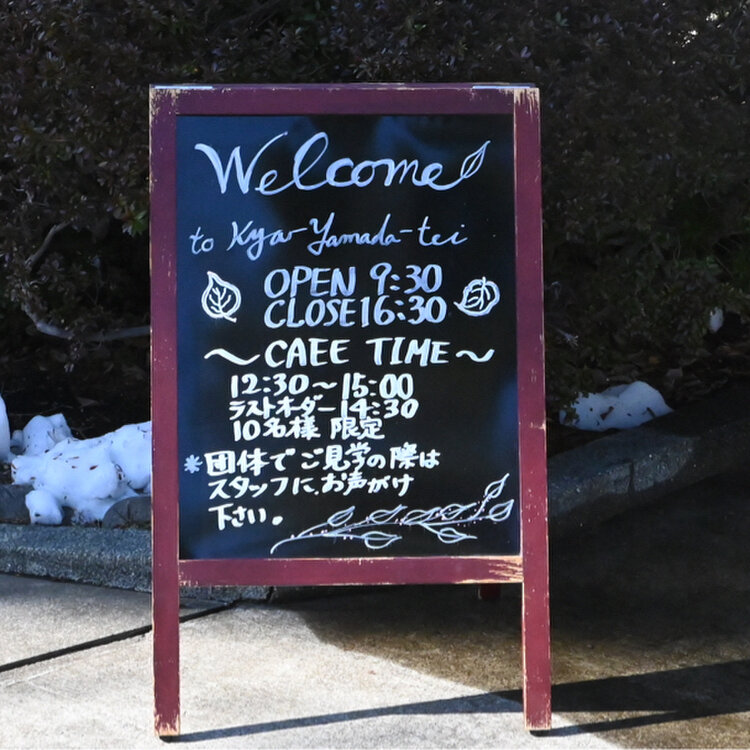 Welcome
to Kyu-Yamada-tei
OPEN 9:30
CLOSE 16:30
～CAFE TIME～
12:30～15:00
ラストオーダー 14:30
10名様 限定
＊団体でご見学の際は
スタッフに、お声がけ
下さい。